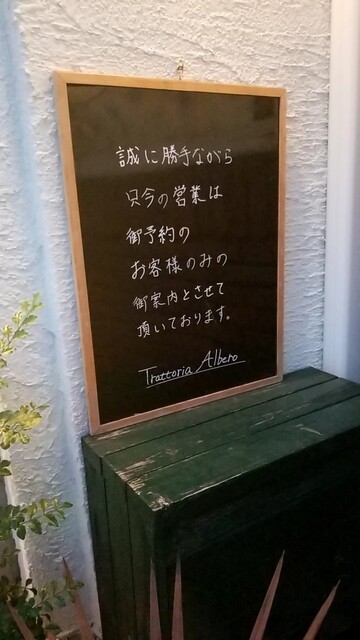 誠に勝手ながら
只今の営業は
御予約の
お客様のみの
御案内とさせて
頂いております。
Trattoria Albero